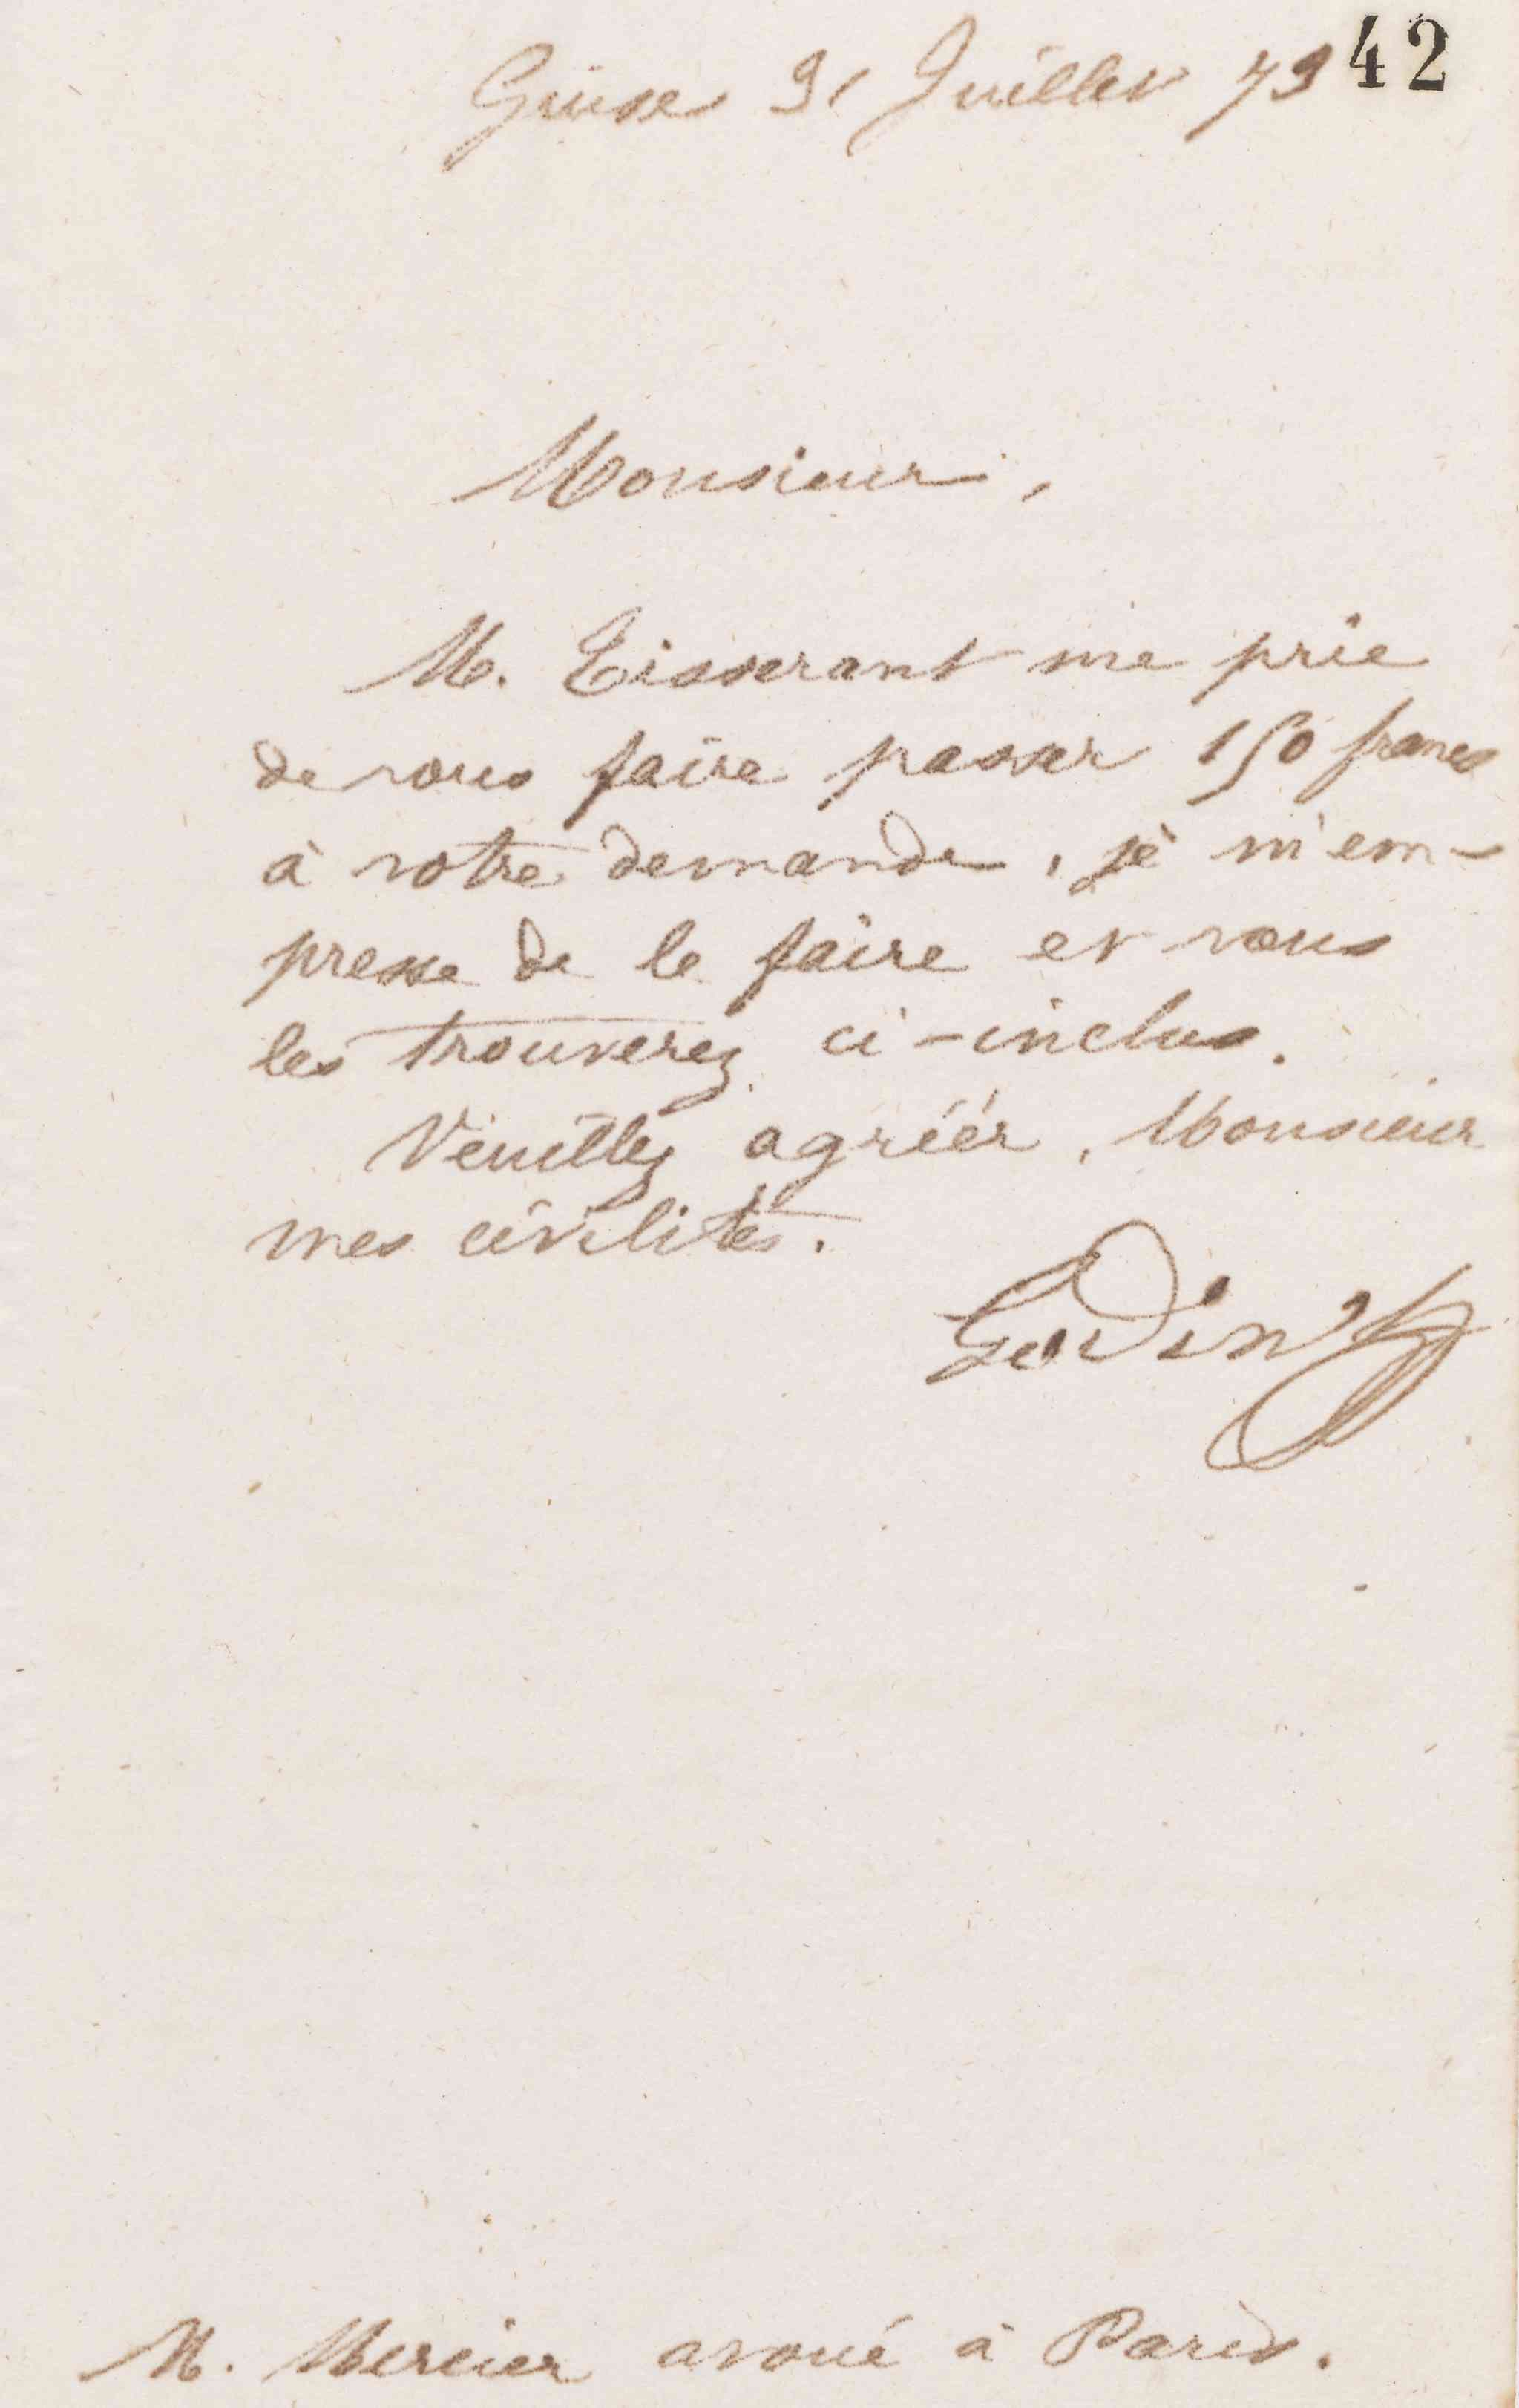 42
Guise 31 Juillet 79
Monsieur,
M. Tisserant me prie
de vous faire passer 150 francs
à votre demande, je m'em-
presse de le faire et vous
les trouverez ci-inclus.
Veuillez agréer, Monsieur
mes civilités.
Godin
M. Mercier avoué à Paris.